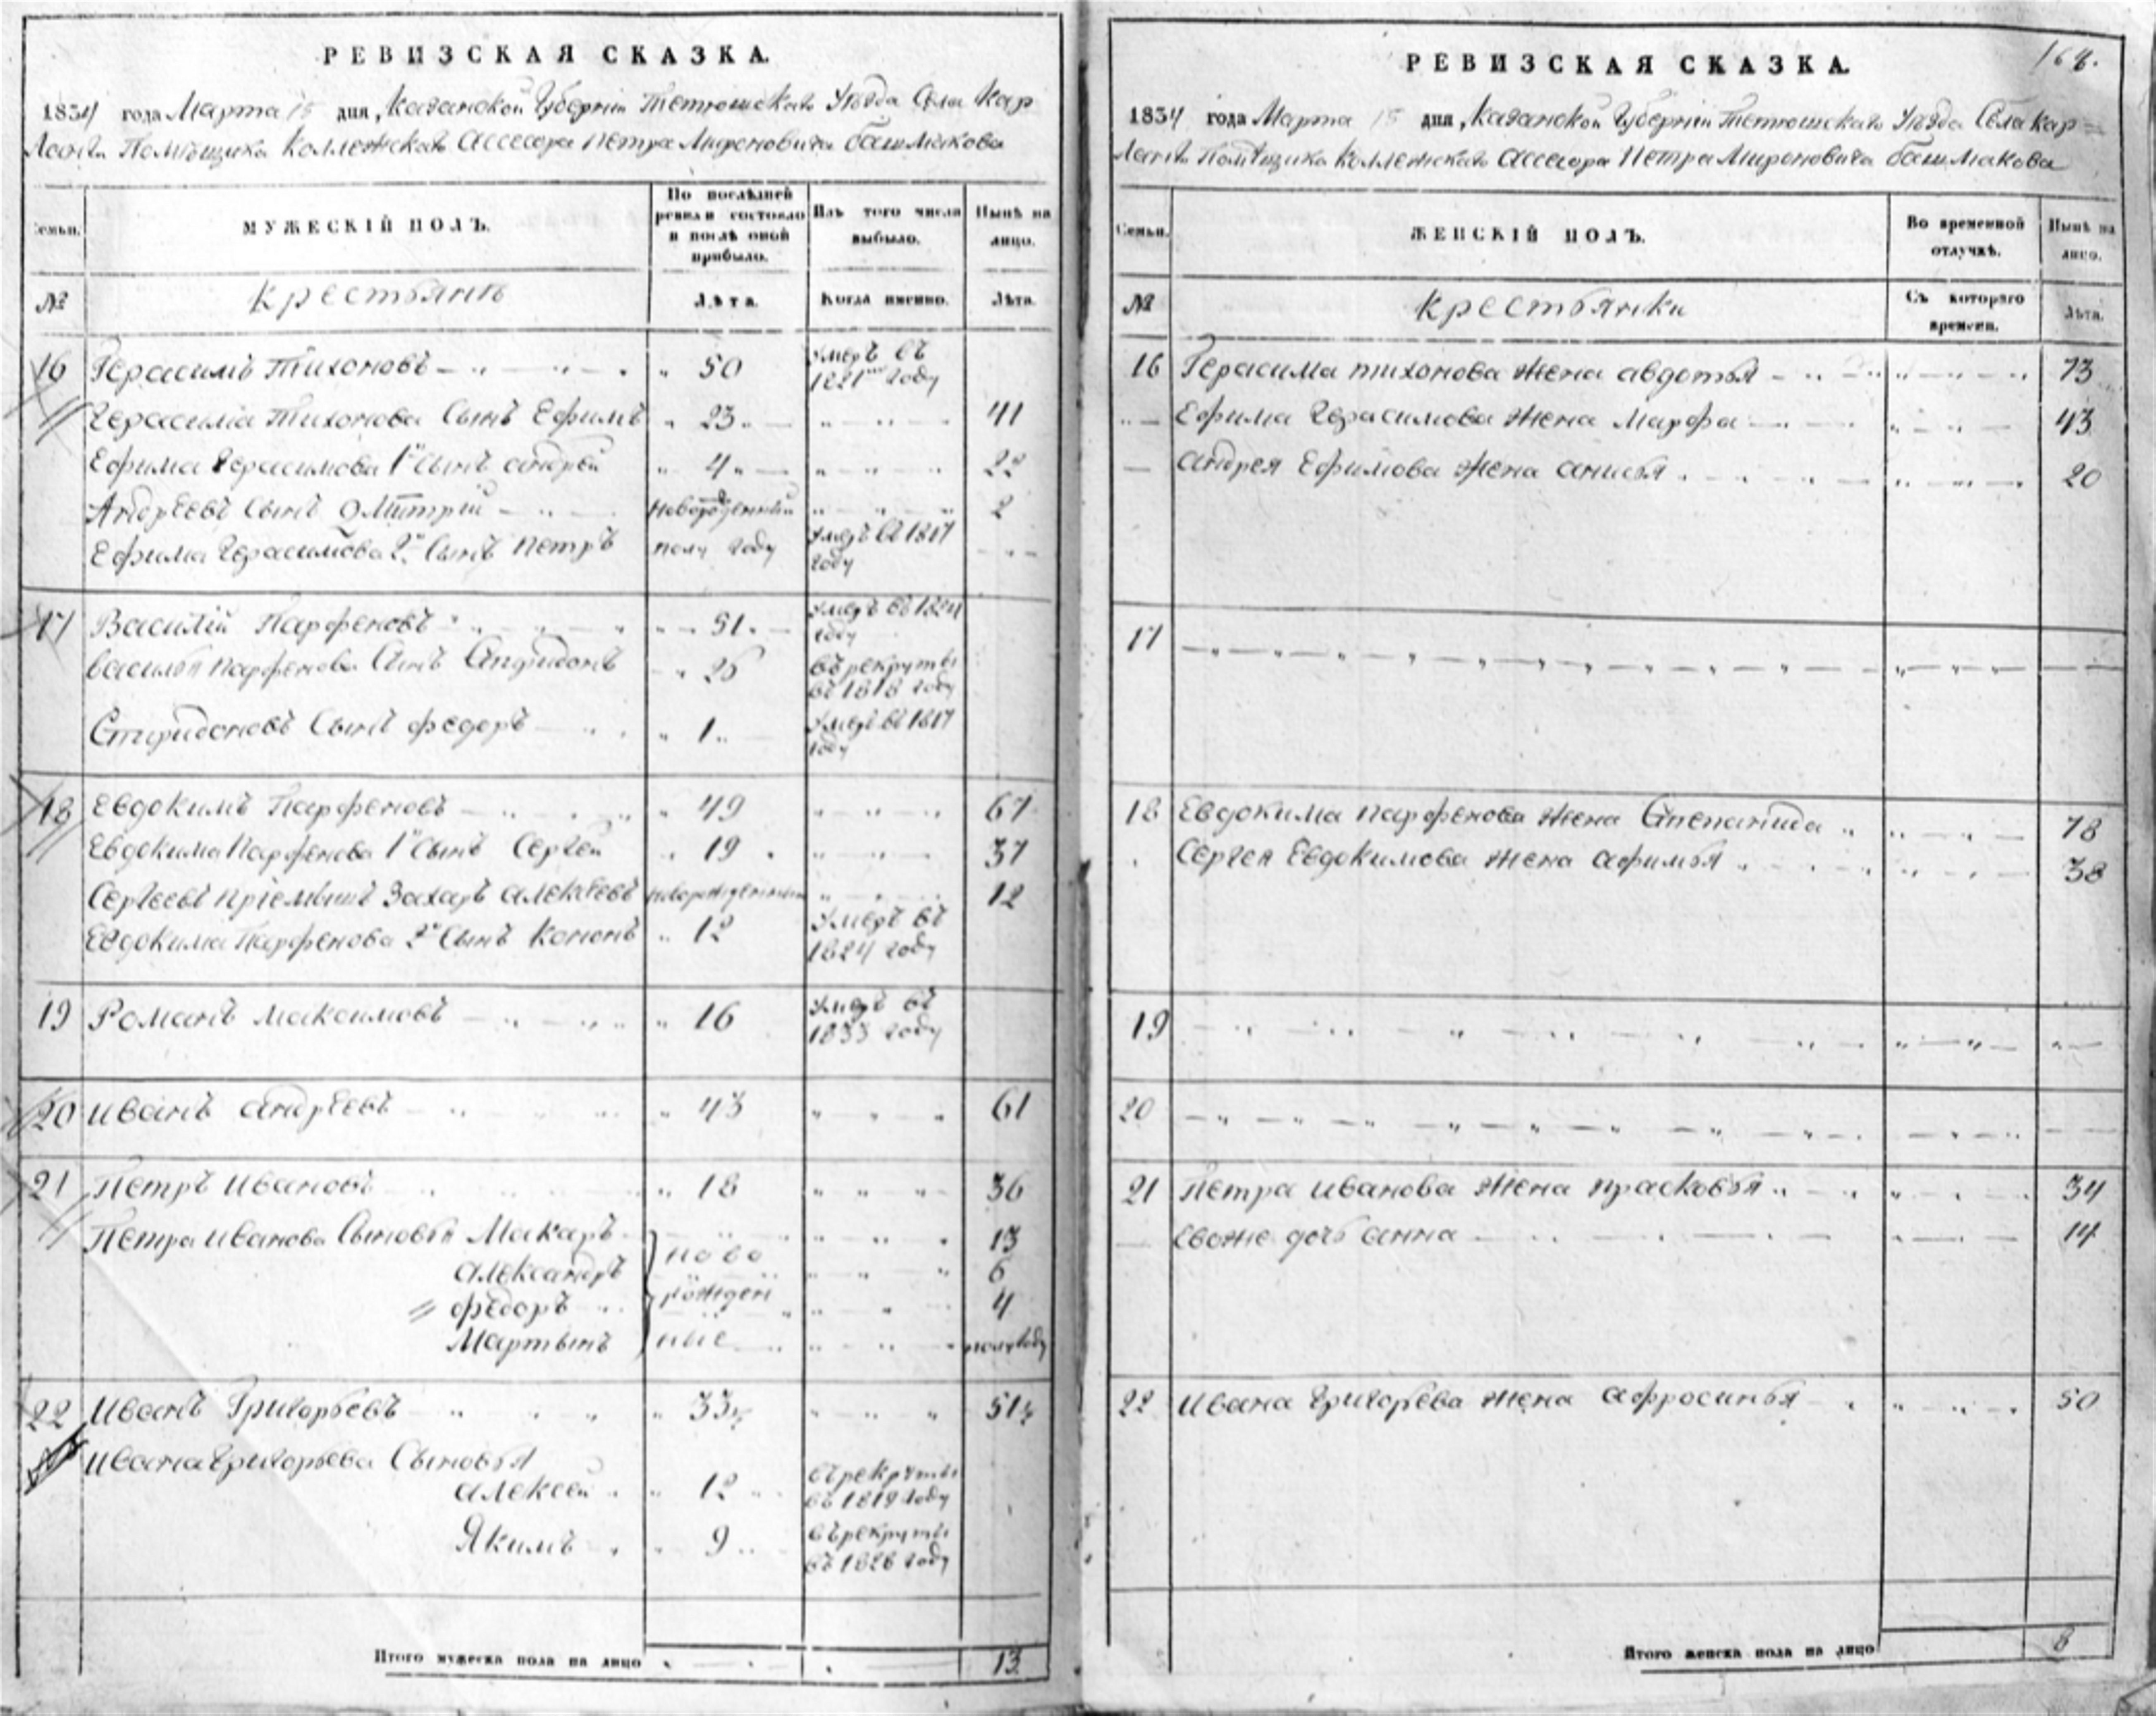 РЕВИЗСКАЯ СКАЗКА.
1834 года Марта 15 дня, Казанской Губернiи Тетюшскаго Уѣзда Села Кар
Ланги Помѣщика Коллежскаго Ассесора Петра Мироновича Башмакова
Семьи.
МУЖЕСКІЙ ПОЛЪ.
По послѣдней ревизіи состояло и послѣ оной прибыло.
Изъ того числа выбыло.
Нынѣ на лицо.
№
Крестьянѣ
Лѣта.
Когда именно.
Лѣта.
16 Герасимъ Тихоновъ 50 Умеръ въ 1821 году
Герасима Тихонова Сынъ Ефимъ 23 41
Ефима Герасимова 1й Сынъ Андрей 4 22
Андреевъ Сынъ Дмитрiй новорожденный 2
Ефима Герасимова 2й Сынъ Петръ полу году Умеръ въ 1817 году
17 Василiй Парфеновъ 51 Умеръ въ 1824 году
Василья Парфенова Сынъ Спиридонъ 25 въ рекруты въ 1818 году
Спиридоновъ Сынъ Федоръ 1 Умеръ въ 1817 году
18 Евдокимъ Парфеновъ 49 67
Евдокима Парфенова 1й Сынъ Сергей 19 37
Сергеевъ прiемышъ Захаръ Алексѣевъ новорожденный 12
Евдокима Парфенова 2й Сынъ Кононъ 12 Умеръ въ 1824 году
19 Романъ Максимовъ 16 Умеръ въ 1833 году
20 Иванъ Андрѣевъ 43 61
21 Петръ Ивановъ 18 36
Петра Иванова Сыновья Макаръ 13
ново
Александръ 6
рожден
Федоръ 4
Мартынъ ные полугоду
22 Иванъ Григорьевъ 33½ 51½
Ивана Григорьева Сыновья
Алексей 12 въ рекруты въ 1819 году
Якимъ 9 въ рекруты въ 1828 году
Итого мужеска пола на лицо 13
164.
РЕВИЗСКАЯ СКАЗКА.
1834 года Марта 15 дня, Казанской Губернiи Тетюшскаго Уѣзда Села Кар=
Ланги Помѣщика Коллежскаго Ассесора Петра Мироновича Башмакова
Семьи.
ЖЕНСКІЙ ПОЛЪ.
Во временной отлучкѣ.
Нынѣ на лицо.
№
Крестьянки
Съ котораго времени.
Лѣта.
16 Герасима Тихонова жена Авдотья 73
Ефима Герасимова жена Марфа 43
Андрея Ефимова жена Анисья 20
17
18 Евдокима Парфенова жена Степанида 78
Сергея Евдокимова жена Афимья 38
19
20
21 Петра Иванова жена Прасковья 34
Евоже дочь Анна 14
22 Ивана Григорьева жена Афросинья 50
Итого женска пола на лицо 8